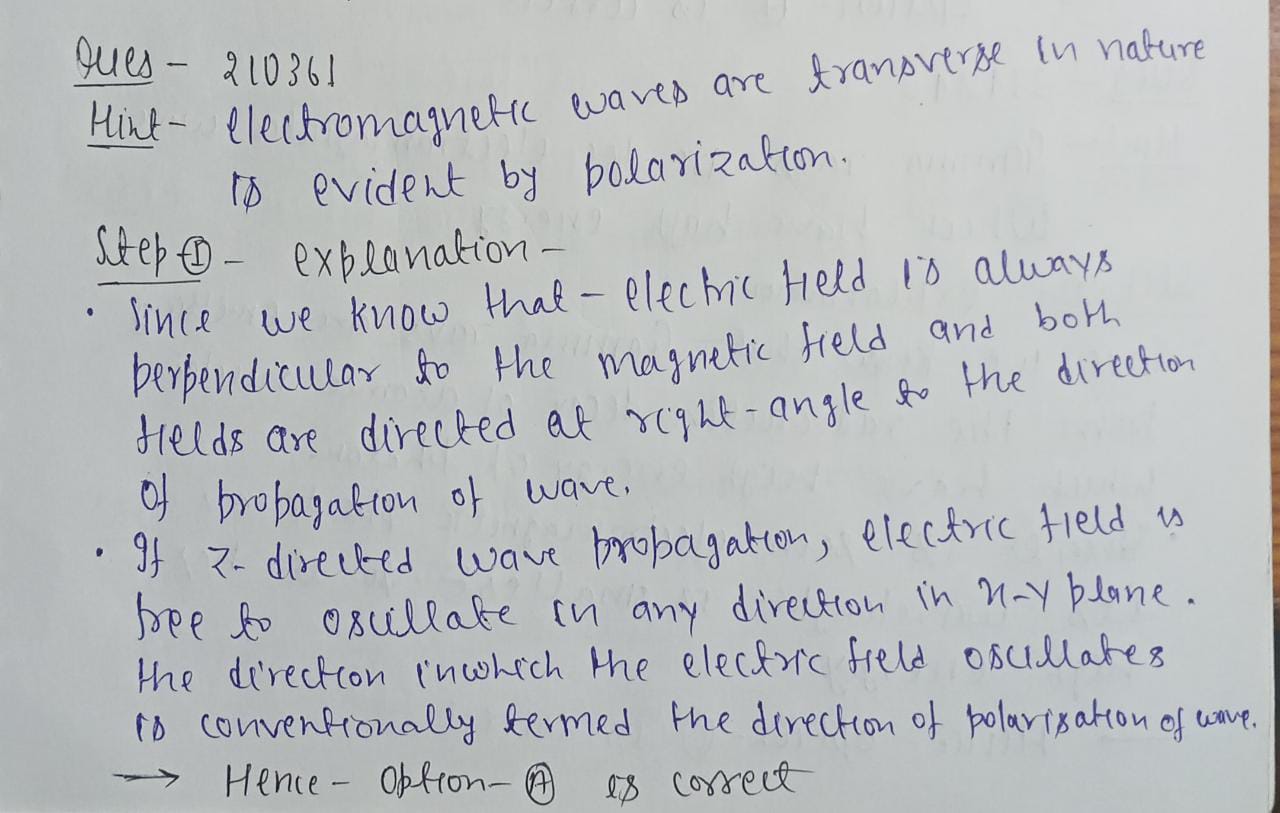 Ques - 210361
Hint - electromagnetic waves are transverse in nature
is evident by polarization.
Step ① - explanation -
• Since we know that - electric field is always
perpendicular to the magnetic field and both
fields are directed at right-angle to the direction
of propagation of wave.
• If z-directed wave propagation, electric field is
free to oscillate in any direction in x-y plane.
the direction in which the electric field oscillates
is conventionally termed the direction of polarisation of wave.
→ Hence - Option - Ⓐ is correct